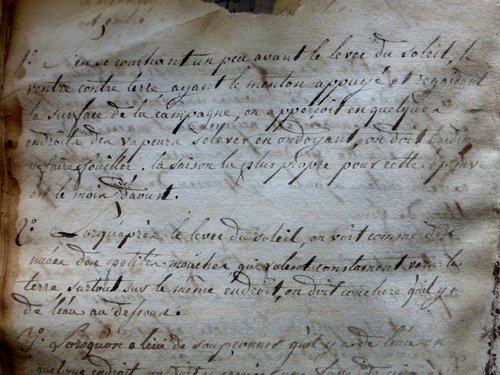 est entre
1.° en se couchant un peu avant le lever du soleil, le
ventre contre terre, ayant le menton appuyé et regardant
la surface de la campagne, on apperçoit en quelques
endroits des vapeurs s'elever en ondoyant, on doit
faire fouiller. la saison la plus propre pour cette
est le mois d'aoust.
2.° Lorquaprès le lever du soleil, on voit comme des
nuées des petites mouches qui volent constament vers la
terre surtout sur le même endroit, on doit conclure qu'il y a
de l'eau au dessous.
3.° Lorsquon a lieu de soupçonner qu'il y a de l'eau en
quelque endroit, on doit